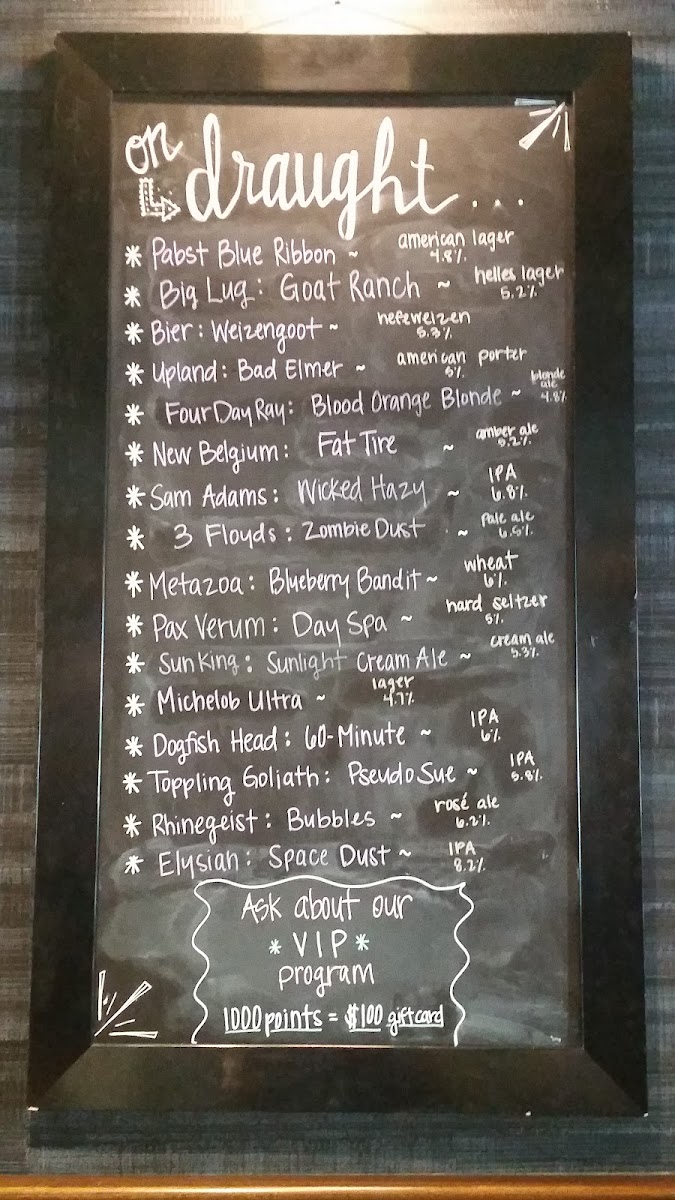 on
draught...
* Pabst Blue Ribbon ~ american lager 4.8%
* Big Lug: Goat Ranch ~ helles lager 5.2%
* Bier: Weizengoot ~ hefeweizen 5.3%
* Upland: Bad Elmer ~ american porter 6%
* Four Day Ray: Blood Orange Blonde ~ blonde ale 4.8%
* New Belgium: Fat Tire ~ amber ale 5.2%
* Sam Adams: Wicked Hazy ~ IPA 6.8%
* 3 Floyds: Zombie Dust ~ Pale ale 6.5%
* Metazoa: Blueberry Bandit ~ wheat 6%
* Pax Verum: Day Spa ~ hard seltzer 5%
* Sun King: Sunlight Cream Ale ~ cream ale 5.3%
* Michelob Ultra ~ lager 4.7%
* Dogfish Head: 60-Minute ~ IPA 6%
* Toppling Goliath: Pseudo Sue ~ IPA 5.8%
* Rhinegeist: Bubbles ~ rosé ale 6.2%
* Elysian: Space Dust ~ IPA 8.2%
Ask about our
* VIP *
program
1000 points = $100 gift card